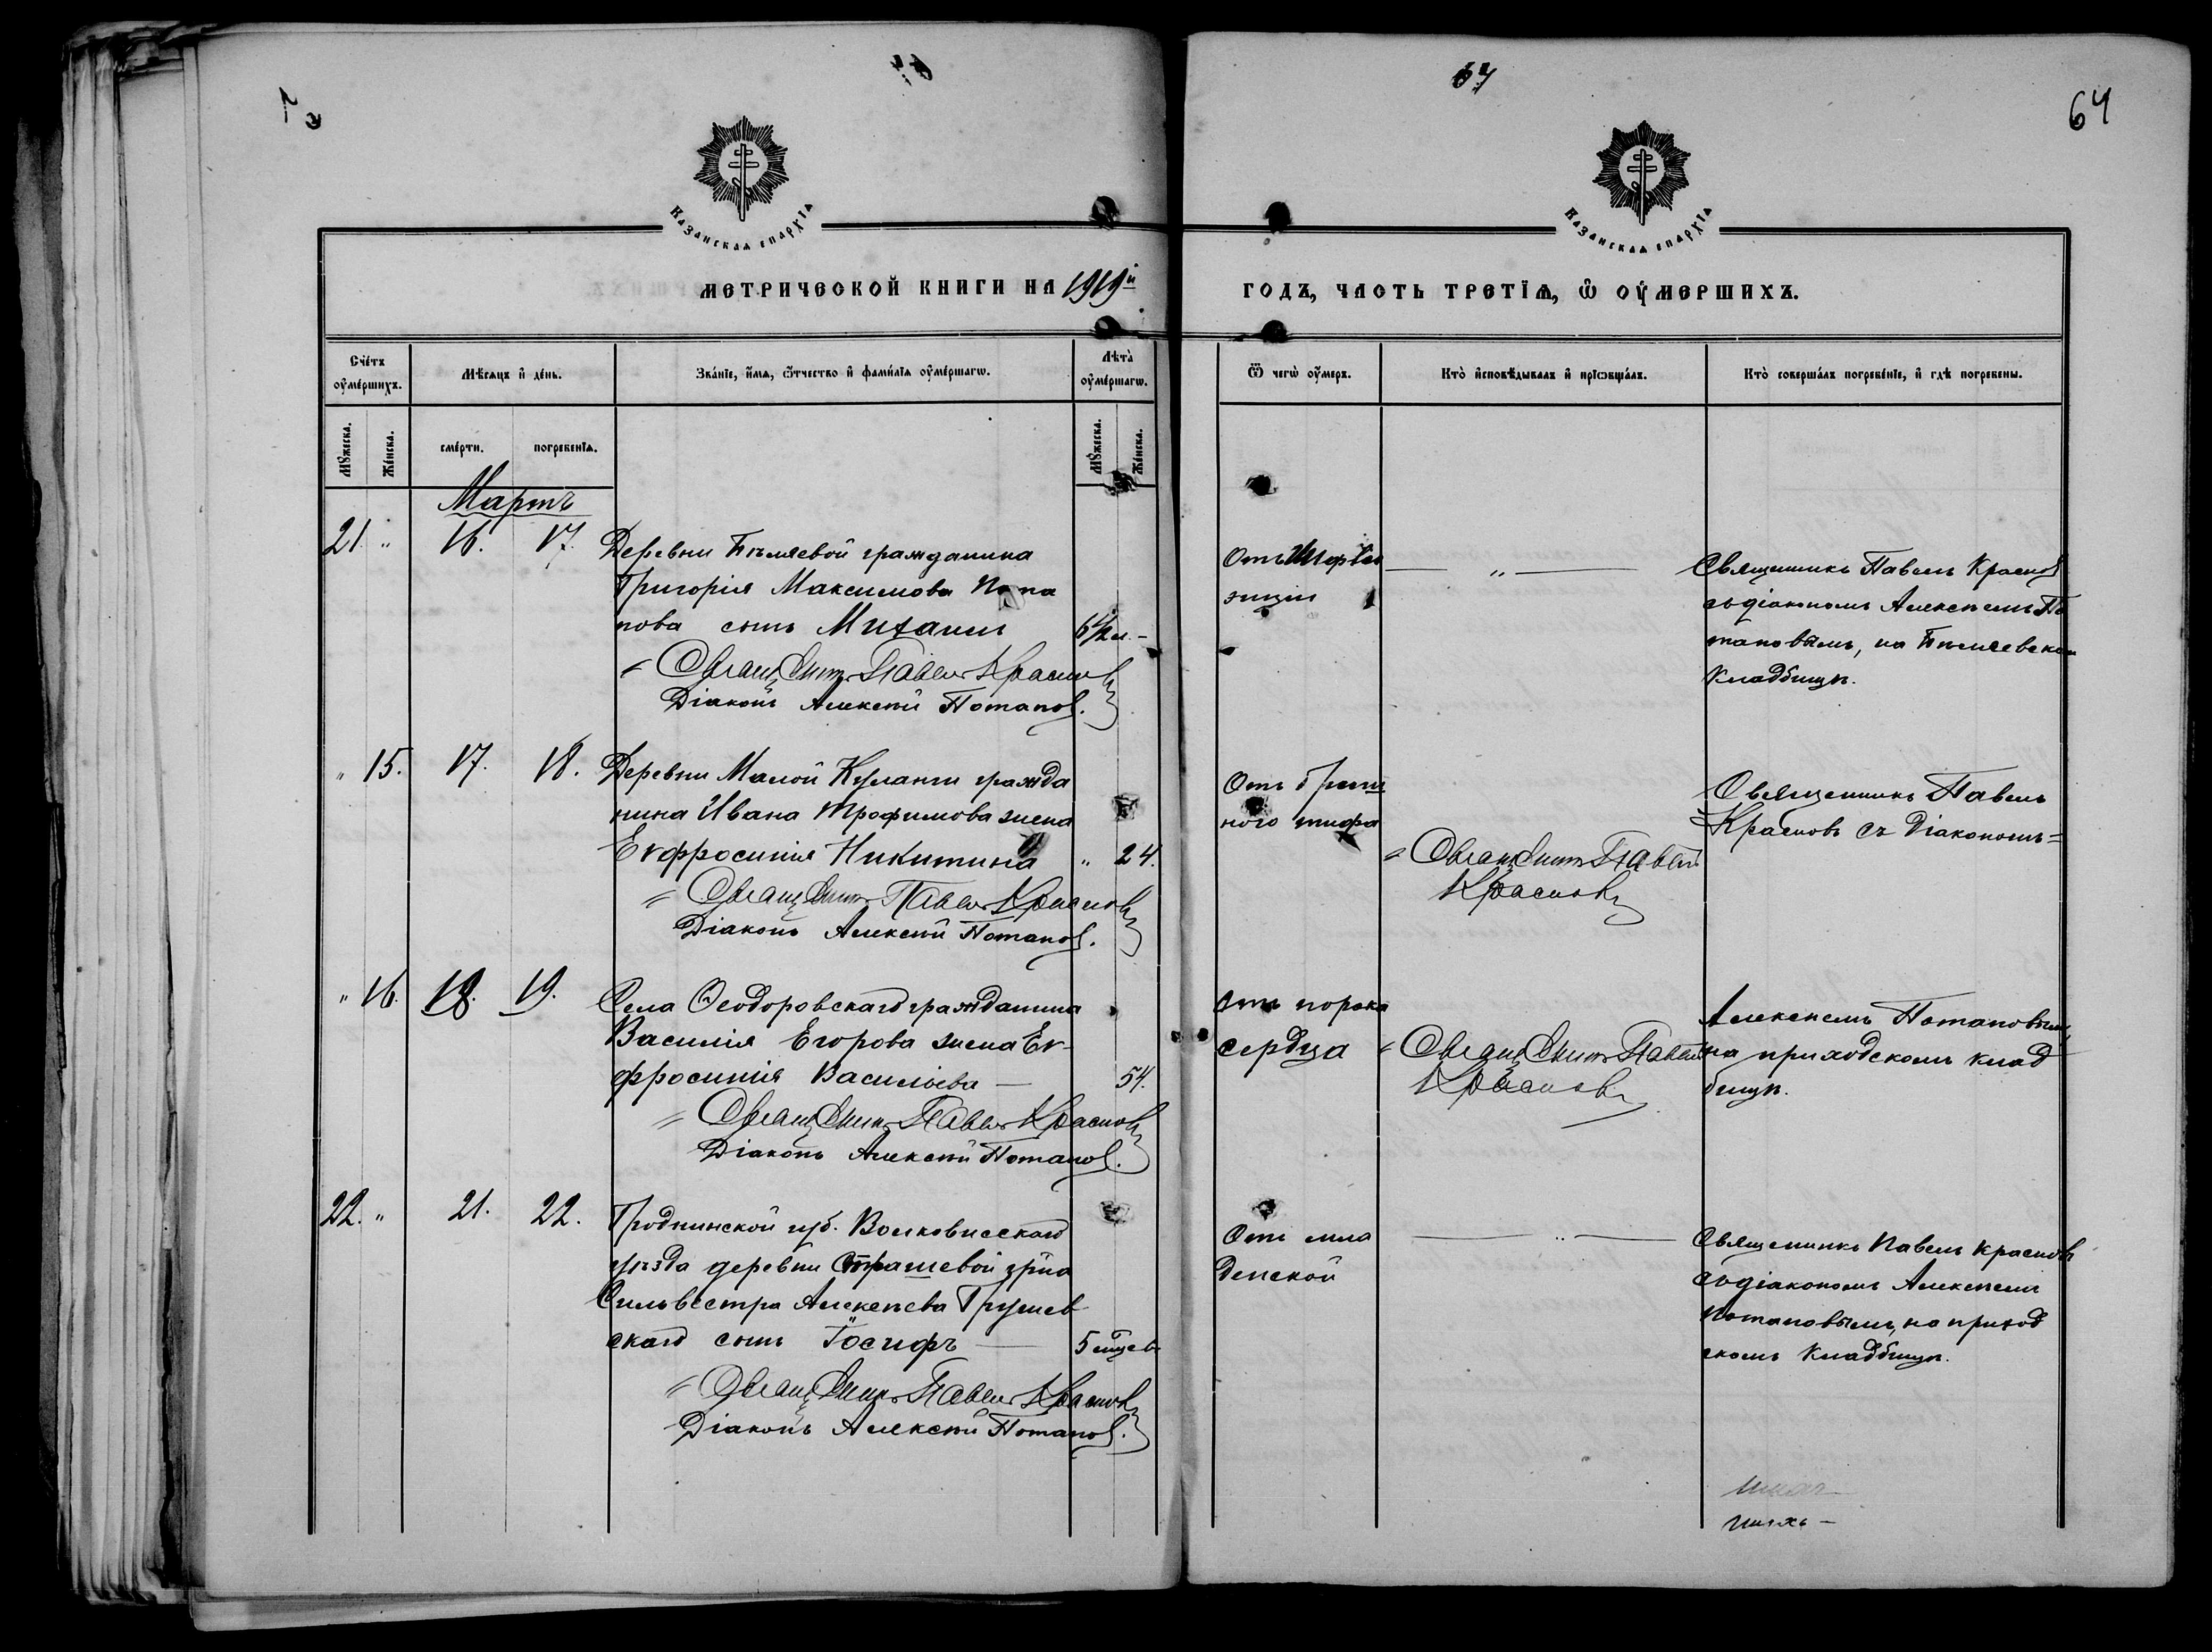 64
64
Казанская епархїѧ
Казанская епархїѧ
МЕТРИЧЕСКОЙ КНИГИ НА 1919й
ГОДЪ, ЧАСТЬ ТРЕТІѦ, Ѿ ОУМЕРШИХЪ.
Счетъ оумершихъ.
Мѣсяцъ и день.
Званїе, имѧ, ѻтчество и фамилїѧ оумершагѡ.
Лѣта оумершагѡ.
Ѿ чегѡ оумеръ.
Кто исповѣдывалъ и прїѡбщалъ.
Кто совершалъ погребенїе, и гдѣ погребены.
Мужеска.
Женска.
смерти.
погребенїѧ.
Мужеска.
Женска.
Мартъ
21 " 16. 17.
Деревни Бѣляевой гражданина
Григорія Максимова Пота
пова сынъ Михаилъ
Священникъ Павелъ Красновъ
Діаконъ Алексѣй Потапов.
Священникъ Павелъ Краснов
съ діакономъ Алексѣемъ По
таповымъ, на Бѣляевском
кладбищѣ.
" 15. 17. 18.
Деревни Малой Куланги гражда
нина Ивана Трофимова жена
Евфросинія Никитина " 24.
Священникъ Павелъ Красновъ
Діаконъ Алексѣй Потапов.
Отъ брюш
ного тифа
Священникъ Павелъ
Красновъ
Священникъ Павелъ
Красновъ съ Діакономъ=
" 16. 18. 19.
Села Ѳеодоровскаго гражданина
Василія Егорова жена Ев-
фросинія Васильева — 54.
Священникъ Павелъ Красновъ
Діаконъ Алексѣй Потапов.
отъ порока
сердца
Священникъ Павелъ
Красновъ
Алексѣемъ Потаповымъ,
на приходскомъ клад
бищѣ.
22. " 21. 22.
Гродненской губ. Волковисскаго
уѣзда деревни Страшевой гр-на
Сильвестра Алексѣева Грушев
скаго сынъ Іосифъ — 5 мѣсяцев
Священникъ Павелъ Красновъ
Діаконъ Алексѣй Потапов.
Отъ мла
денской
— " —
Священникъ Павелъ Красновъ
съ діакономъ Алексѣемъ
Потаповымъ, на приход
скомъ кладбищѣ.